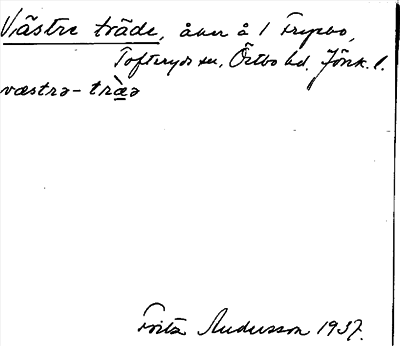 Västre träde, åker å 1 Frysbo,
Tofteryds sn, Östbo hd. Jönk. l.
væstrə-træ̀ə
Fritz Andersson 1937.